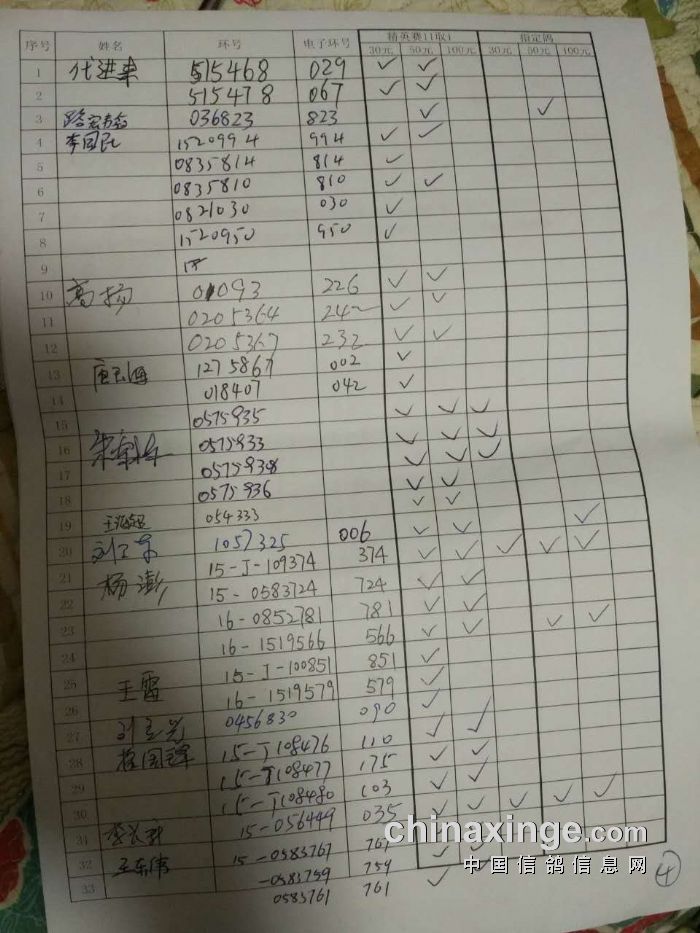 序号 姓名 环号 电子环号 精英赛11取1 指定鸽
30元 50元 100元 30元 50元 100元
1 代进来 515468 029 ✓ ✓
2 515478 067 ✓ ✓
3 036823 823 ✓ ✓
4 李国民 1520994 994 ✓ ✓
5 0835814 814 ✓
6 0835810 810 ✓ ✓
7 0821030 030 ✓
8 1520950 950 ✓
9
10 高扬 01093 226 ✓ ✓
11 0205364 242 ✓ ✓
12 0205367 232 ✓ ✓
13 1275867 002 ✓
14 018407 042 ✓
15 0575935 ✓ ✓ ✓
16 0575933 ✓ ✓ ✓
17 0575938 ✓ ✓ ✓
18 0575936 ✓ ✓
19 054333 ✓ ✓
20 1057325 006 ✓ ✓ ✓
21 杨澎 15-J-109374 374 ✓ ✓ ✓ ✓ ✓
22 15-0583724 724 ✓ ✓
23 16-0852781 781 ✓ ✓
24 16-1519566 566 ✓ ✓ ✓ ✓
25 王雷 15-J-100851 851 ✓
26 16-1519579 579 ✓
27 0456830 090 ✓
28 15-J108476 110 ✓ ✓
29 15-J108477 175 ✓ ✓
30 15-J108480 103 ✓ ✓
31 15-056449 035 ✓ ✓ ✓ ✓ ✓
32 王东伟 15-0583767 767
33 -0583759 759
0583761 761 ✓
chinaxinge.com
中国信鸽信息网
4